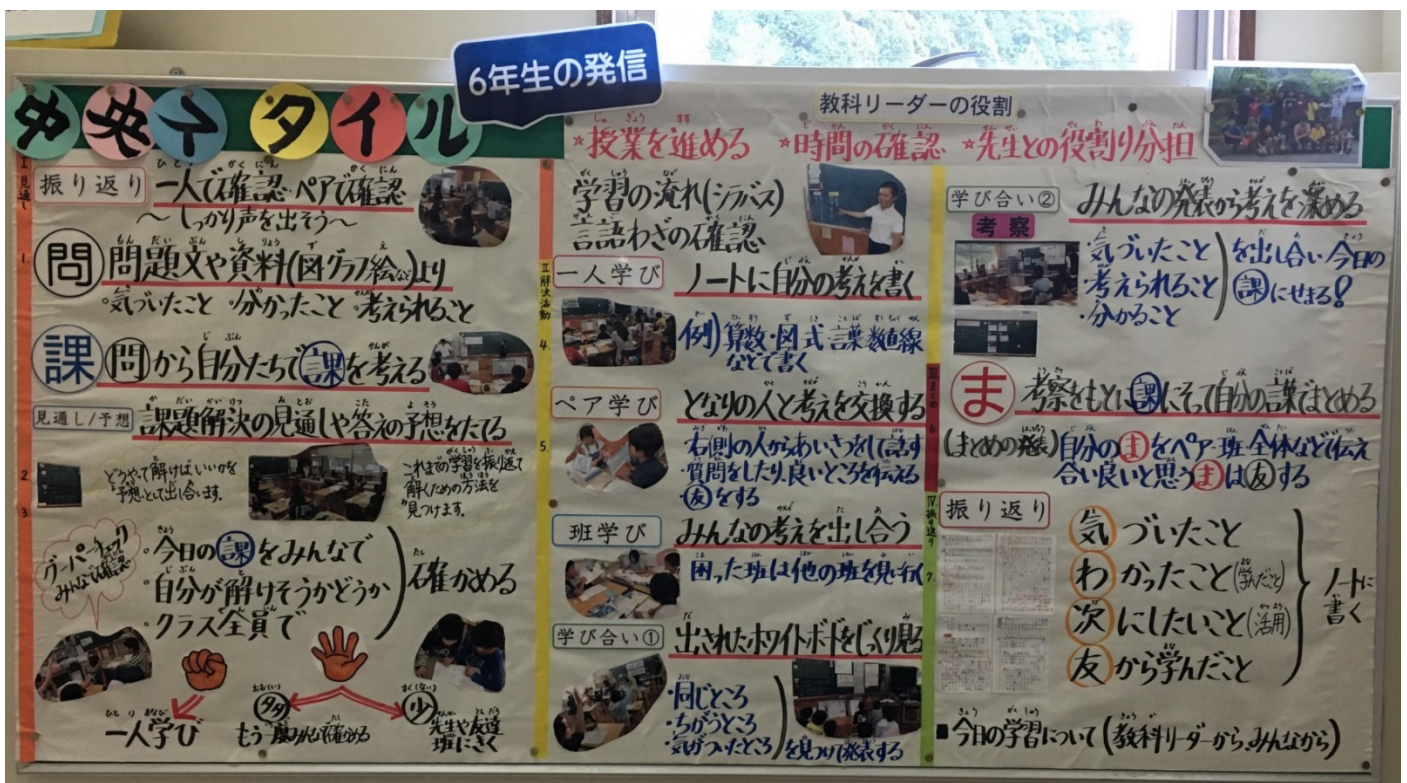 6年生の発信
中央スタイル
教科リーダーの役割
☆授業を進める ☆時間の確認 ☆先生との役割り分担
I 見通し
振り返り 一人で確認・ペアで確認
～しっかり声を出そう～
1.
問 問題文や資料(図グラフ絵など)より
・気づいたこと ・分かったこと ・考えられること
課 問から自分たちで課を考える
見通し/予想 課題解決の見通しや答えの予想をたてる
2
どうやって解けばいいかを
予想として出し合います。
これまでの学習を振り返って
解くための方法を
見つけます。
3
グーパーチェック
みんなで確認
・今日の課をみんなで
・自分が解けそうかどうか
・クラス全員で
確かめる
一人学び
多 もう一度みんなで確かめる
少 先生や友達
班にきく
学習の流れ(シラバス)
言語わざの確認
II 解決活動
一人学び ノートに自分の考えを書く
4.
例) 算数・図 式 言葉 数直線
などで書く
ペア学び となりの人と考えを交換する
5.
・右側の人からあいさつをして話す
・質問をしたり、良いところを伝える
・友をする
班学び みんなの考えを出し合う
困った班は他の班を見に行く
学び合い① 出されたホワイトボードをじっくり見る
・同じところ
・ちがうところ
・気がついたところ
を見つけて発表する
学び合い② みんなの発表から考えを深める
考察
・気づいたこと
・考えられること
・分かること
を出し合い今日の
課にせまる!
III まとめ
6
ま 考察をもとに課にそって自分の言葉でまとめる
(まとめの発表) 自分のまをペア・班・全体などで伝え
合い良いと思うまは友する
IV 振り返り
振り返り
7.
気づいたこと
わかったこと(学んだこと)
次にしたいこと(活用)
友から学んだこと
ノートに
書く
■今日の学習について(教科リーダーから、みんなから)